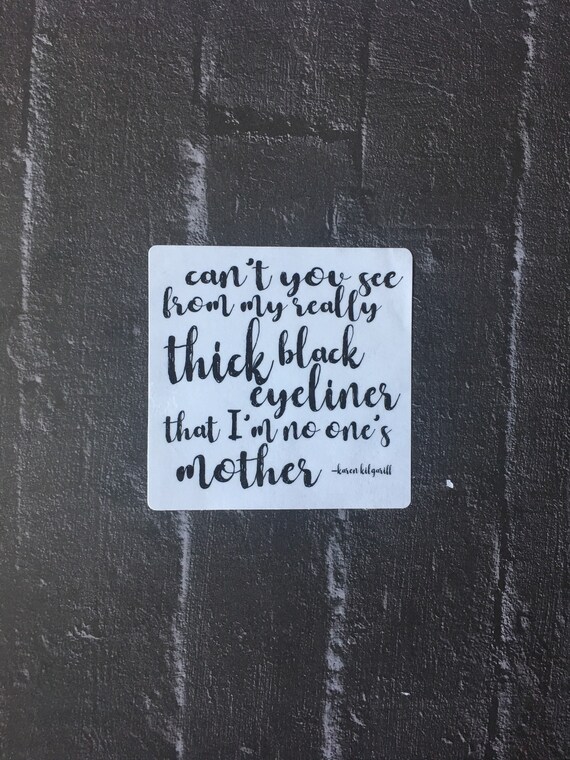 can't you see
from my really
thick black
eyeliner
that I'm no one's
mother -karen kilgariff